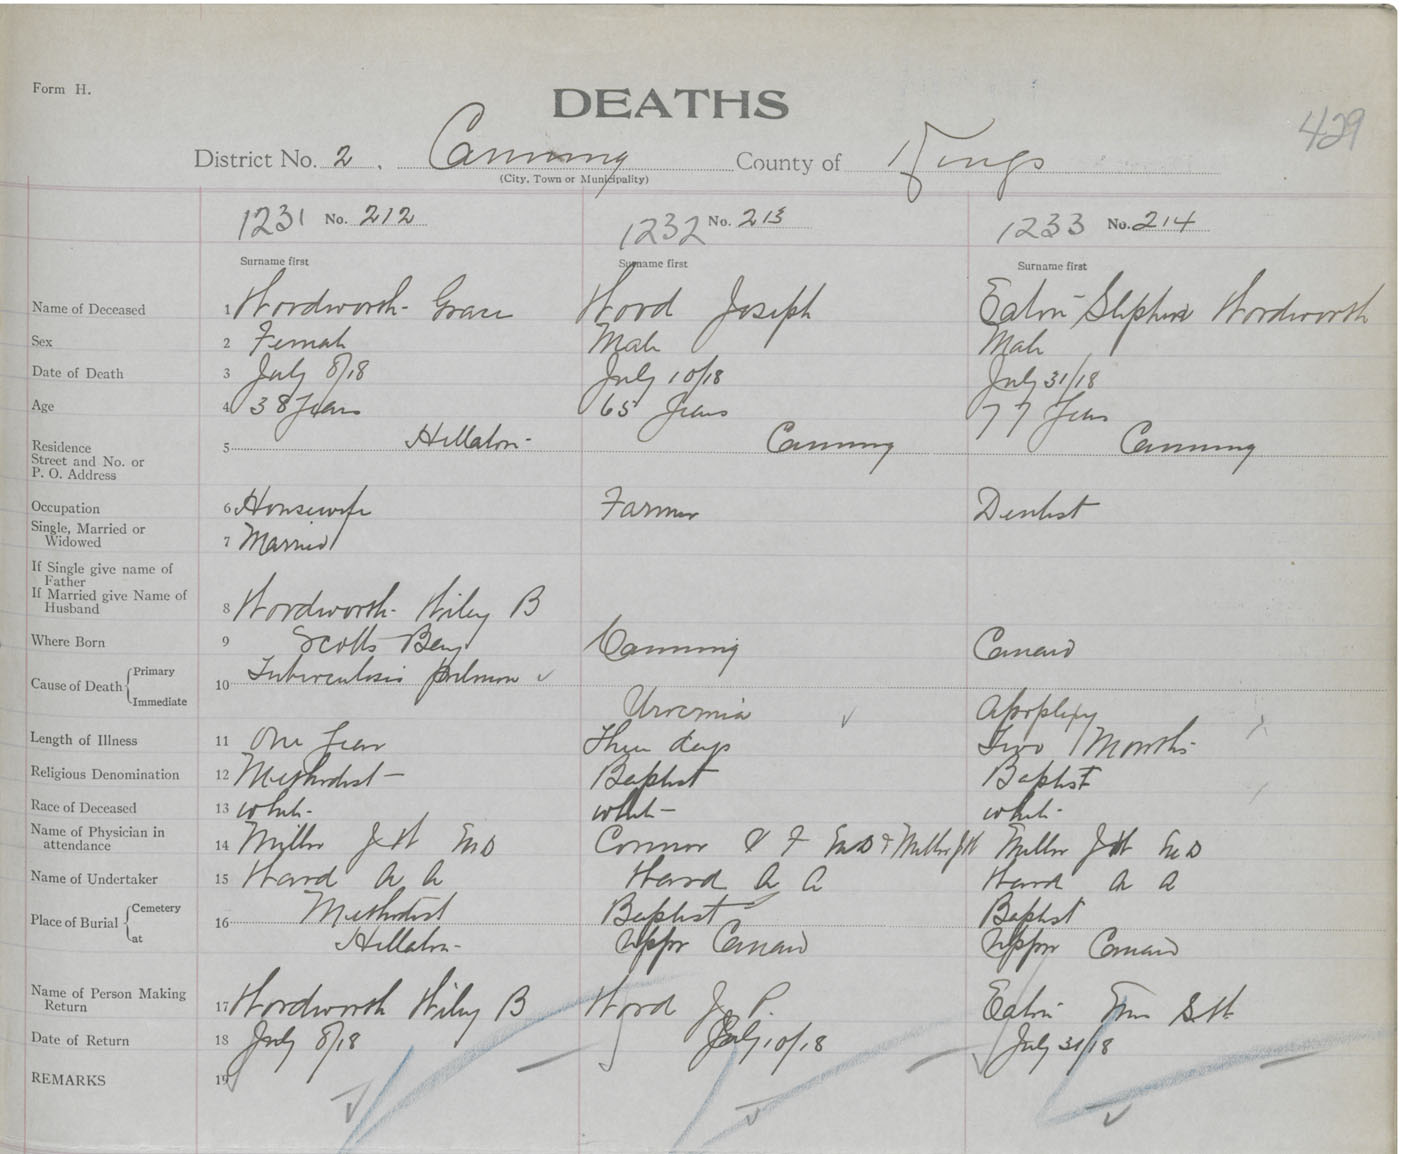 Form H.
DEATHS
429
District No. 2. Canning County of Kings
(City, Town or Municipality)
1231 No. 212 1232 No. 213 1233 No. 214
Surname first Surname first Surname first
Name of Deceased 1 Wordworth Grace Word Joseph Eaton Stephen Wordworth
Sex 2 Female Male Male
Date of Death 3 July 8/18 July 10/18 July 31/18
Age 4 38 Years 65 Years 77 Years
Residence
Street and No. or
P. O. Address
5 Hillaton Canning Canning
Occupation 6 Housewife Farmer Dentist
Single, Married or
Widowed
7 Married
If Single give name of
Father
If Married give Name of
Husband
8 Wordworth Wiley B
Where Born 9 Scotts Bay Canning Canard
Cause of Death Primary
Immediate
10 Tuberculosis pulmon
Uroemia Apoplexy
Length of Illness 11 One Year Three days Two Months
Religious Denomination 12 Methodist Baptist Baptist
Race of Deceased 13 white white white
Name of Physician in
attendance
14 Miller J H MD Connor F MD & Miller J H Miller J H MD
Name of Undertaker 15 Ward A A Ward A A Ward A A
Place of Burial Cemetery
at
16 Methodist Baptist Baptist
Hillaton Upper Canard Upper Canard
Name of Person Making
Return
17 Wordworth Wiley B Word J. P. Eaton S W
Date of Return 18 July 8/18 July 10/18 July 31/18
REMARKS 19